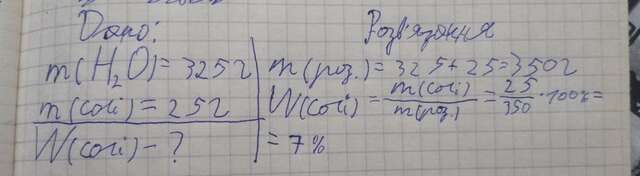 Дано:
m(H₂O) = 325г
m(солі) = 25г
W(солі) - ?
Розв'язання
m(роз.) = 325 + 25 = 350г
W(солі) = m(солі)/m(роз.) = 25/350 · 100% =
= 7%